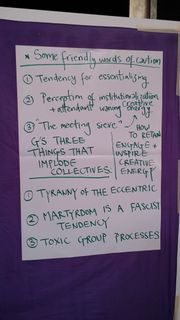 * Some friendly words of caution
① Tendency for essentializing
② Perception of institutionalization
+ attendant waning creative energy
③ "The meeting sieve."
→ HOW TO RETAIN
ENGAGE +
INSPIRE
CREATIVE
ENERGY
G'S THREE
THINGS THAT
IMPLODE
COLLECTIVES.
① TYRANNY OF THE ECCENTRIC
② MARTYRDOM IS A FASCIST
TENDENCY
③ TOXIC GROUP PROCESSES